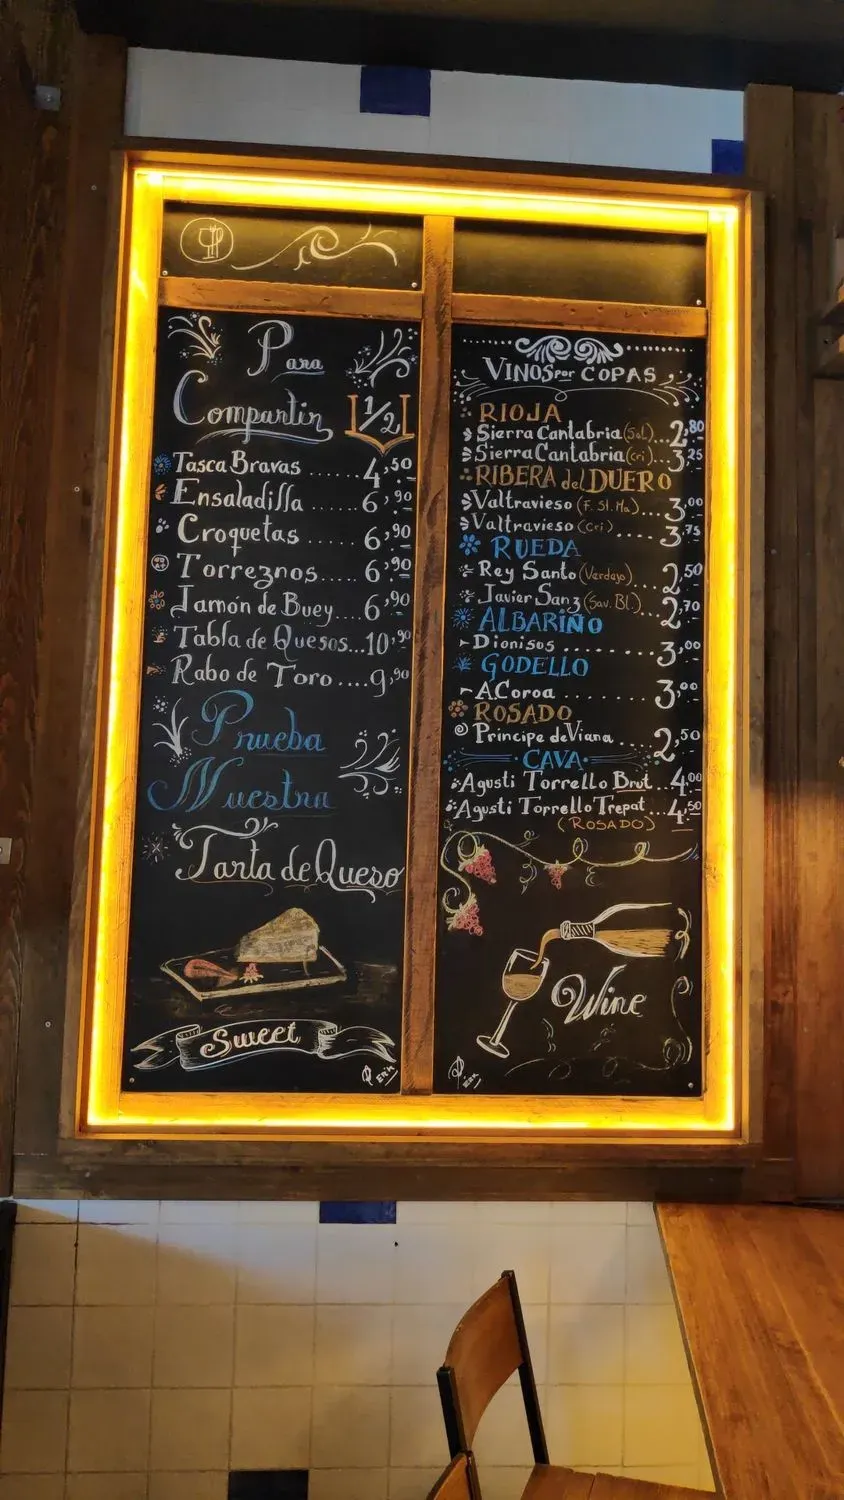 Para
Compartir 1/2
Tasca Bravas ...... 4,50
Ensaladilla ...... 6,90
Croquetas ...... 6,90
Torreznos ..... 6,90
Jamón de Buey .... 6,90
Tabla de Quesos... 10,90
Rabo de Toro .... 9,90
Prueba
Nuestra
Tarta de Queso
Sweet
VINOS por COPAS
RIOJA
Sierra Cantabria (Sel.)... 2,80
Sierra Cantabria (cri)... 3,25
RIBERA del DUERO
Valtravieso (F. St. Ma) .... 3,00
Valtravieso (Cri) ...... 3,75
RUEDA
Rey Santo (Verdejo) .... 2,50
Javier Sanz (Sav. Bl.) ... 2,70
ALBARIÑO
Dionisos ........ 3,00
GODELLO
A.Coroa ........ 3,00
ROSADO
Principe de Viana .... 2,50
CAVA
Agusti Torrello Brut .. 4,00
Agusti Torrello Trepat .. 4,50
(ROSADO)
Wine